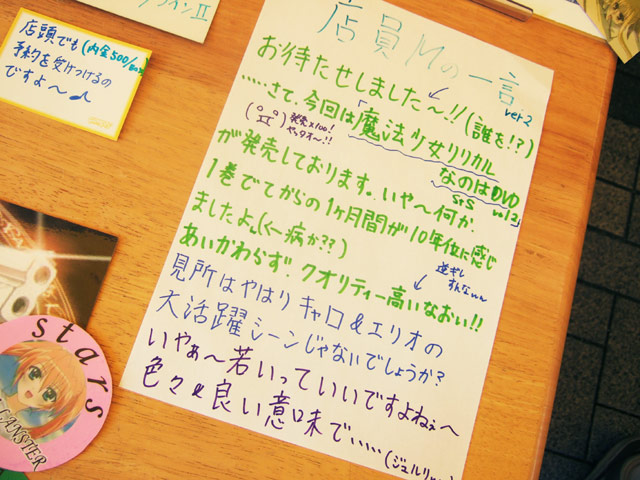 ラインⅡ
店頭でも(内金500/
予約を受けつけるの
ですよ～♪
店員Mの一言
ver.2
お待たせしました～!!(誰を!?)
……さて、今回は「魔法少女リリカル
なのはDVD
StS vol2」
発売×100!
やッタオー!!
が発売しております。いや～何か、
1巻でてからの1ヶ月間が10年位に感じ
ましたよ。(←病か??)
あいかわらず、クオリティー高いなおい!!
見所はやはりキャロ&エリオの
大活躍シーンじゃないでしょうか?
いやぁ～若いっていいですよねぇ～
色々と良い意味で……(ジュルリ
stars
LANSTER